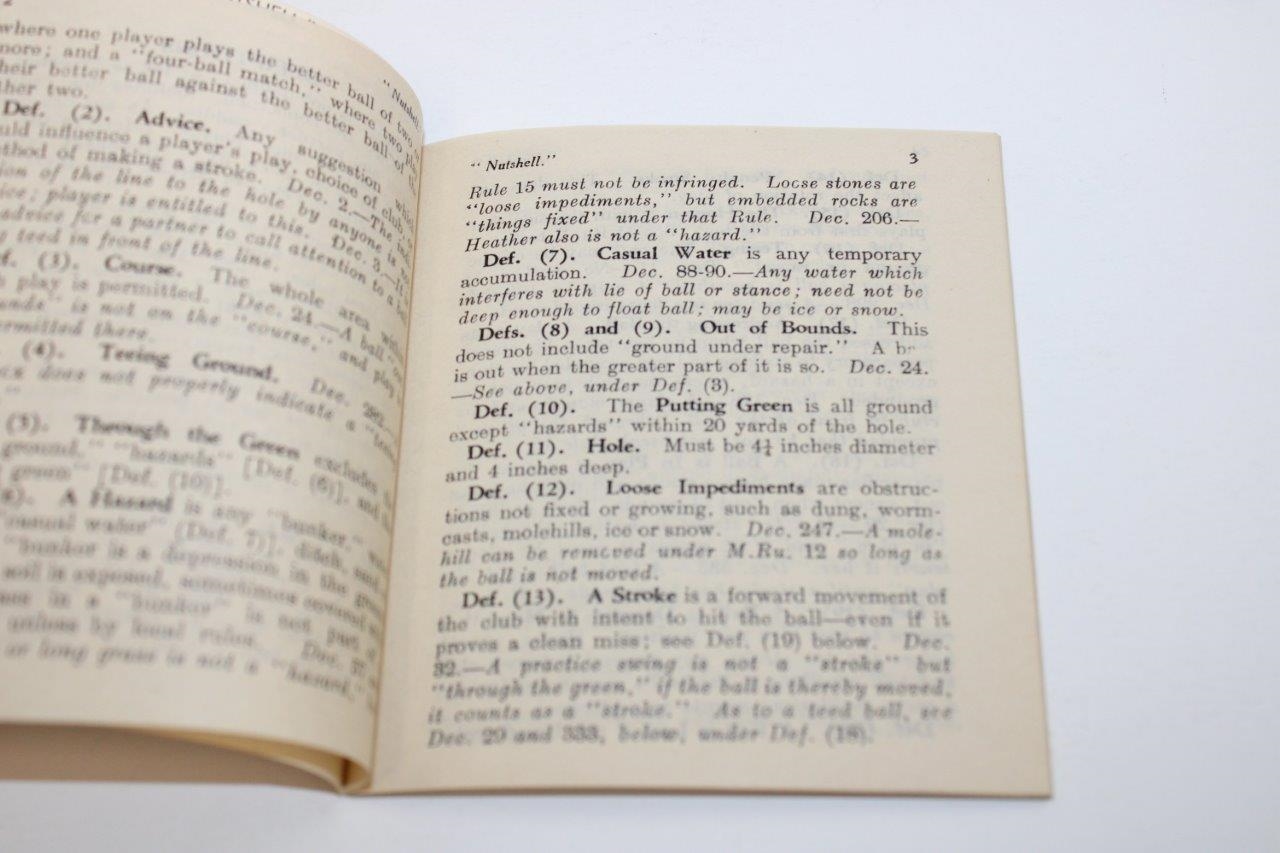 where one player plays the better ball of two or
more; and a "four-ball match," where two play
their better ball against the better ball of the
other two.
Def. (2). Advice. Any suggestion which
could influence a player's play, choice of club or
method of making a stroke. Dec. 2.—The
of the line to the hole by anyone is not
player is entitled to this. Dec. 3.—It is
advice for a partner to call attention to a
teed in front of the line.
(3). Course. The whole area within
play is permitted. Dec. 24.—A ball "out
is not on the "course," and play is
permitted there.
(4). Teeing Ground. Dec.
does not properly indicate a
(5). Through the Green excludes the
ground," "hazards" [Def. (6)], and the
green" [Def. (10)].
A Hazard is any "bunker,"
"casual water" (Def. 7)], ditch,
"bunker is a depression in the
soil is exposed, sometimes covered
in a "bunker" is not part of
unless by local rules. Dec.
or long grass is not a "hazard,"
"Nutshell."
"Nutshell." 3
Rule 15 must not be infringed. Loose stones are
"loose impediments," but embedded rocks are
"things fixed" under that Rule. Dec. 206.—
Heather also is not a "hazard."
Def. (7). Casual Water is any temporary
accumulation. Dec. 88-90.—Any water which
interferes with lie of ball or stance; need not be
deep enough to float ball; may be ice or snow.
Defs. (8) and (9). Out of Bounds. This
does not include "ground under repair." A
is out when the greater part of it is so. Dec. 24.
—See above, under Def. (3).
Def. (10). The Putting Green is all ground
except "hazards" within 20 yards of the hole.
Def. (11). Hole. Must be 4¼ inches diameter
and 4 inches deep.
Def. (12). Loose Impediments are obstruc-
tions not fixed or growing, such as dung, worm-
casts, molehills, ice or snow. Dec. 247.—A mole-
hill can be removed under M.Ru. 12 so long as
the ball is not moved.
Def. (13). A Stroke is a forward movement of
the club with intent to hit the ball—even if it
proves a clean miss; see Def. (19) below. Dec.
32.—A practice swing is not a "stroke" but
"through the green," if the ball is thereby moved,
it counts as a "stroke." As to a teed ball, see
Dec. 29 and 333, below, under Def. (18).